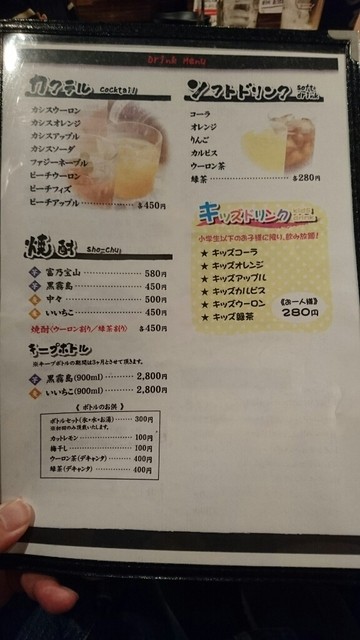 Drink Menu
カクテル cocktail
カシスウーロン
カシスオレンジ
カシスアップル
カシスソーダ
ファジーネーブル
ピーチウーロン
ピーチフィズ
ピーチアップル 各450円
焼酎 sho-chu
芋 富乃宝山 580円
芋 黒霧島 450円
麦 中々 500円
麦 いいちこ 450円
焼酎〈ウーロン割り/緑茶割り〉 各450円
キープボトル
※キープボトルの期間は3ヶ月とさせて頂きます。
芋 黒霧島(900ml) 2,800円
麦 いいちこ(900ml) 2,800円
《 ボトルのお供 》
ボトルセット(氷・水・お湯) 300円
※初回のみ頂戴いたします。
カットレモン 100円
梅干し 100円
ウーロン茶(デキャンタ) 400円
緑茶(デキャンタ) 400円
ソフトドリンク soft drink
コーラ
オレンジ
りんご
カルピス
ウーロン茶
緑茶 各280円
キッズドリンク
小学生以下のお子様に限り、飲み放題!
★ キッズコーラ
★ キッズオレンジ
★ キッズアップル
★ キッズカルピス
★ キッズウーロン
★ キッズ緑茶
《お一人様》
280円